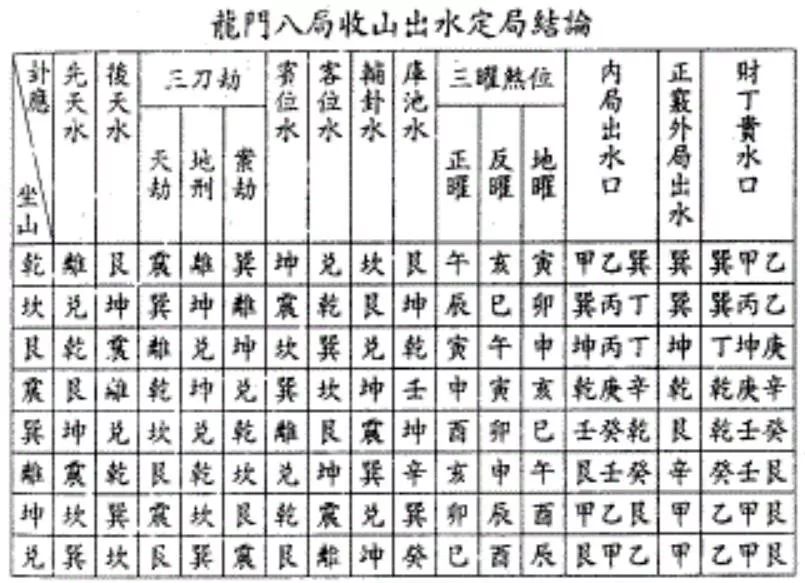 龍門八局收山出水定局結論
卦應 坐山 先天水 後天水 三刀劫 賓位水 客位水 輔卦水 庫池水 三曜煞位 內局出水口 正竅外局出水 財丁貴水口
天劫 地刑 案劫 正曜 反曜 地曜
乾 離 艮 震 離 巽 坤 兌 坎 艮 午 亥 寅 甲乙巽 巽 巽甲乙
坎 兌 坤 巽 坤 離 震 乾 艮 坤 辰 巳 卯 巽丙丁 巽 巽丙乙
艮 乾 震 離 兌 坤 坎 巽 兌 乾 寅 午 申 坤丙丁 坤 丁坤庚
震 艮 離 乾 坤 兌 巽 坎 坤 壬 申 寅 亥 乾庚辛 乾 乾庚辛
巽 坤 兌 坎 兌 乾 離 艮 震 坤 酉 卯 巳 壬癸乾 艮 乾壬癸
離 震 乾 艮 乾 坎 兌 坤 巽 辛 亥 申 午 艮壬癸 辛 癸壬艮
坤 坎 巽 震 坎 艮 乾 震 兌 巽 卯 辰 酉 甲乙艮 甲 乙甲艮
兌 巽 坎 艮 巽 震 艮 離 坤 癸 巳 酉 辰 艮甲乙 甲 乙甲艮